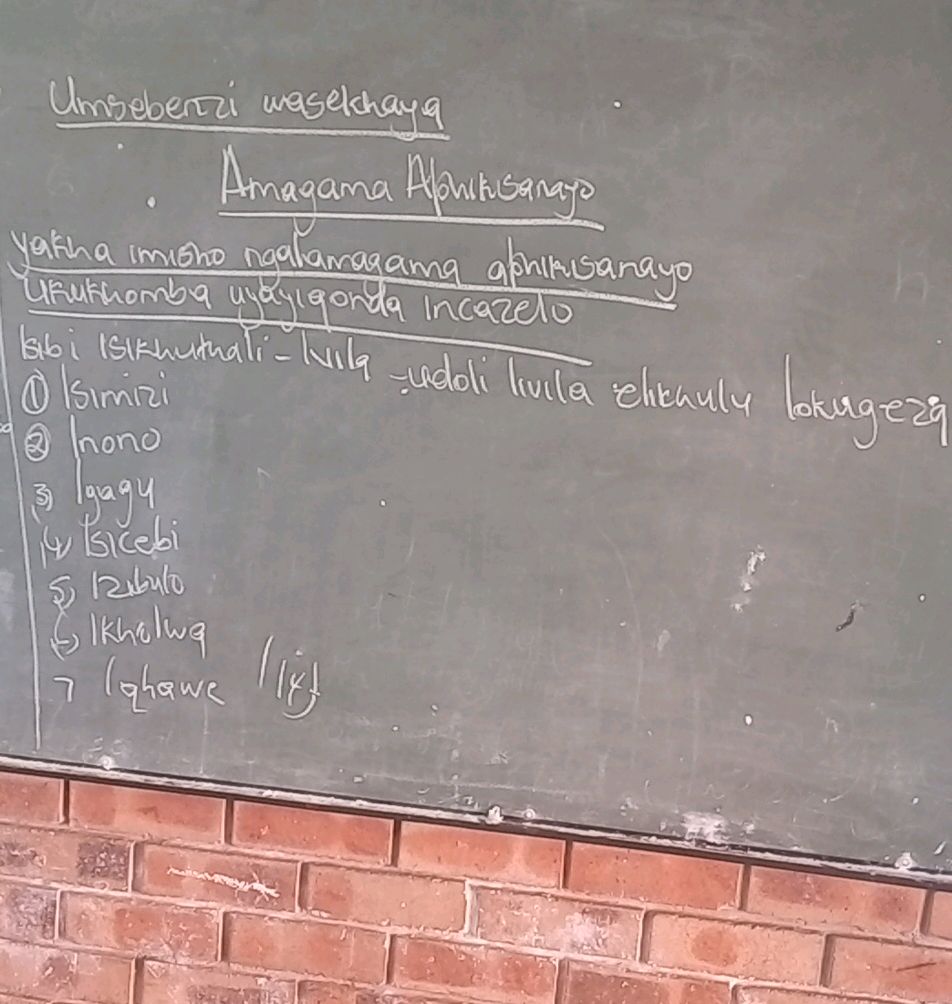 Umsebenzi wasekhaya
Amagama Aphikisanayo
yakha imisho ngalamagama aphikisanayo
Ukukhomba uyayiqonda incazelo
Isib: isikhuthali - Ivila - udoli livila elikhulu lokugeza
① Isimizi
② Inono
3) Igagu
4) Isicebi
5) Izibulo
6) Ikholwa
7 Iqhawe